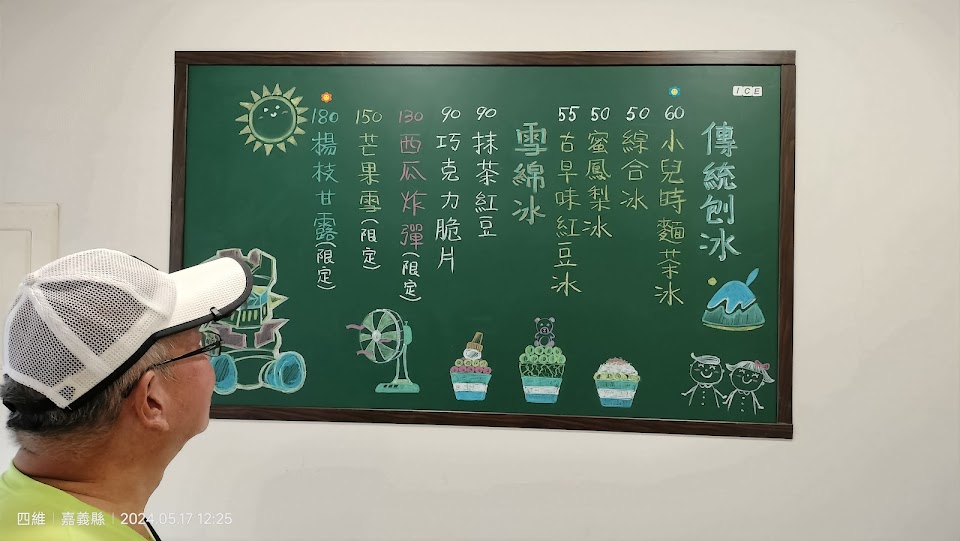 ICE
傳統刨冰
60 小兒時麵茶冰
50 綜合冰
50 蜜鳳梨冰
55 古早味紅豆冰
雪綿冰
90 抹茶紅豆
90 巧克力脆片
130 西瓜炸彈(限定)
150 芒果雪(限定)
180 楊枝甘露(限定)
四維 | 嘉義縣 | 2024.05.17 12:25